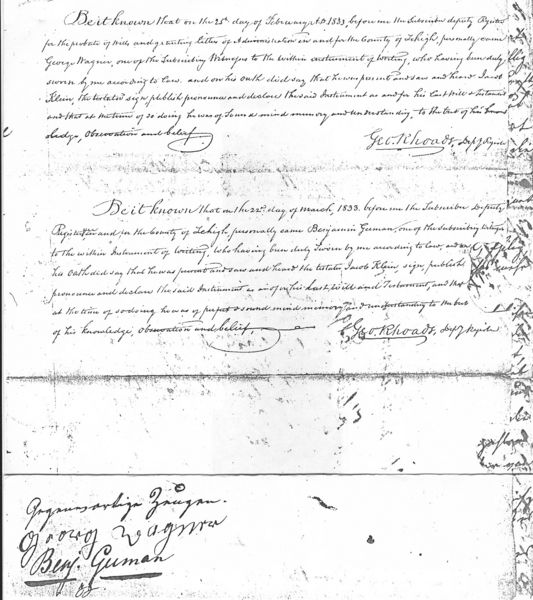 Be it known that on the 25th day of February AD 1833, before me the Subscriber deputy Register
for the probate of Wills and granting letters of Administration in and for the County of Lehigh, personally came
George Wagner, one of the Subscribing Witnesses to the within instrument of writing, who having been duly
sworn by me according to law, and on his oath did say that he was present and saw and heard Jacob
Klein, the testator sign publish pronounce and declare the said Instrument as and for his Last Will & Testament
and that at the time of so doing he was of sound mind memory and understanding, to the best of his know
ledge, observation and belief.
Geo. Rhoads, Dep'y Register
Be it known that on the 22nd day of March, 1833. before me the Subscriber Deputy
Register in and for the County of Lehigh, personally came Benjamin Guman, one of the Subscribing
to the within Instrument of writing, who having been duly Sworn by me according to law, and on
his Oath did say that he was present and saw and heard the testator Jacob Klein, sign, publish
pronounce and declare the said Instrument as and for his Last Will and Testament, and that
at the time of so doing he was of perfect & sound mind memory and understanding to the best
of his knowledge, observation and belief.
Geo. Rhoads, Dep'y Register
Gegenwärtige Zeugen.
Georg Wagner
Benj. Guman